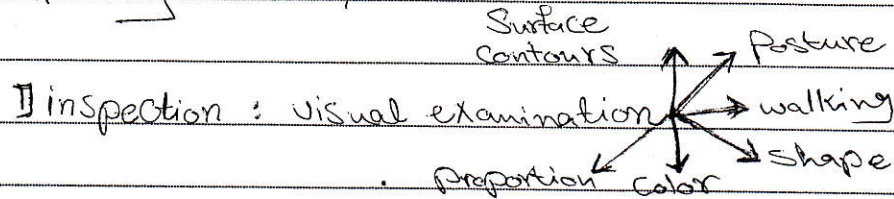 Surface
contours
posture
1] inspection : visual examination
walking
shape
proportion color